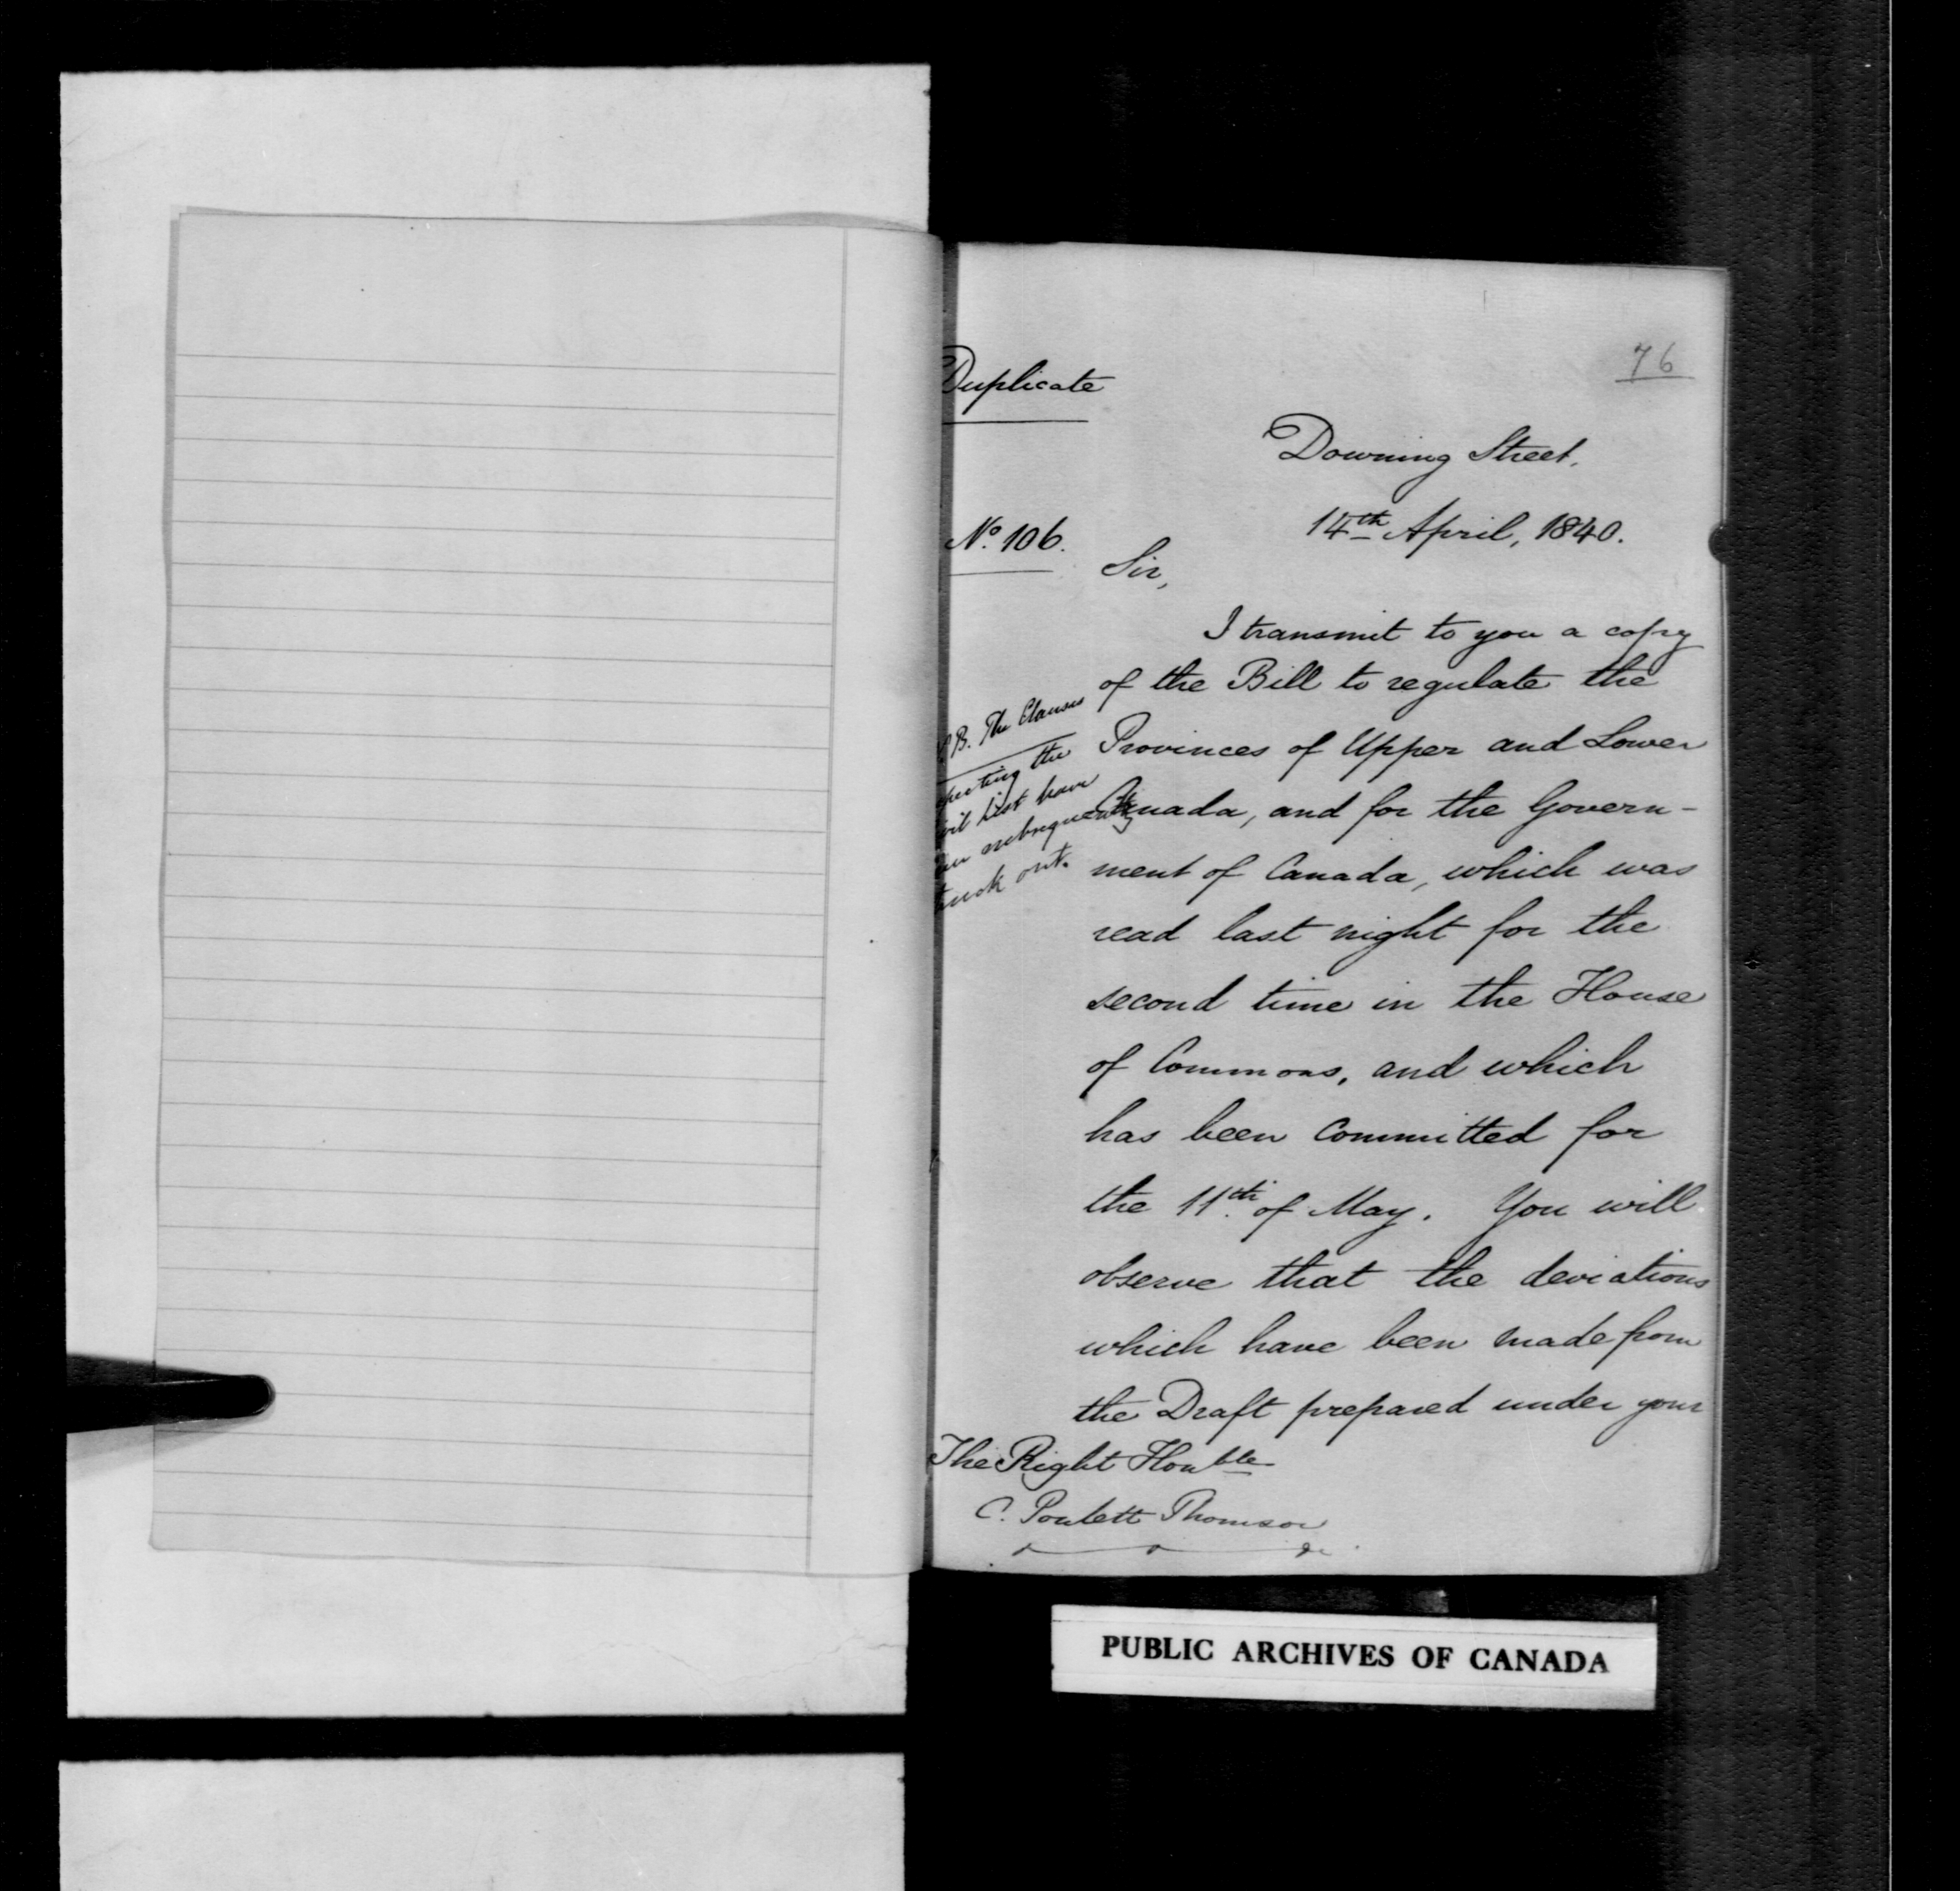 76
Duplicate
Downing Street,
14th April, 1840.
No. 106.
Sir,
I transmit to you a copy
of the Bill to regulate the
Provinces of Upper and Lower
Canada, and for the Govern-
ment of Canada, which was
read last night for the
second time in the House
of Commons, and which
has been committed for
the 11th of May. You will
observe that the deviations
which have been made from
the Draft prepared under your
B. The Clauses
the
List have
subsequently
out.
The Right Honble
C. Poulett Thomson
PUBLIC ARCHIVES OF CANADA